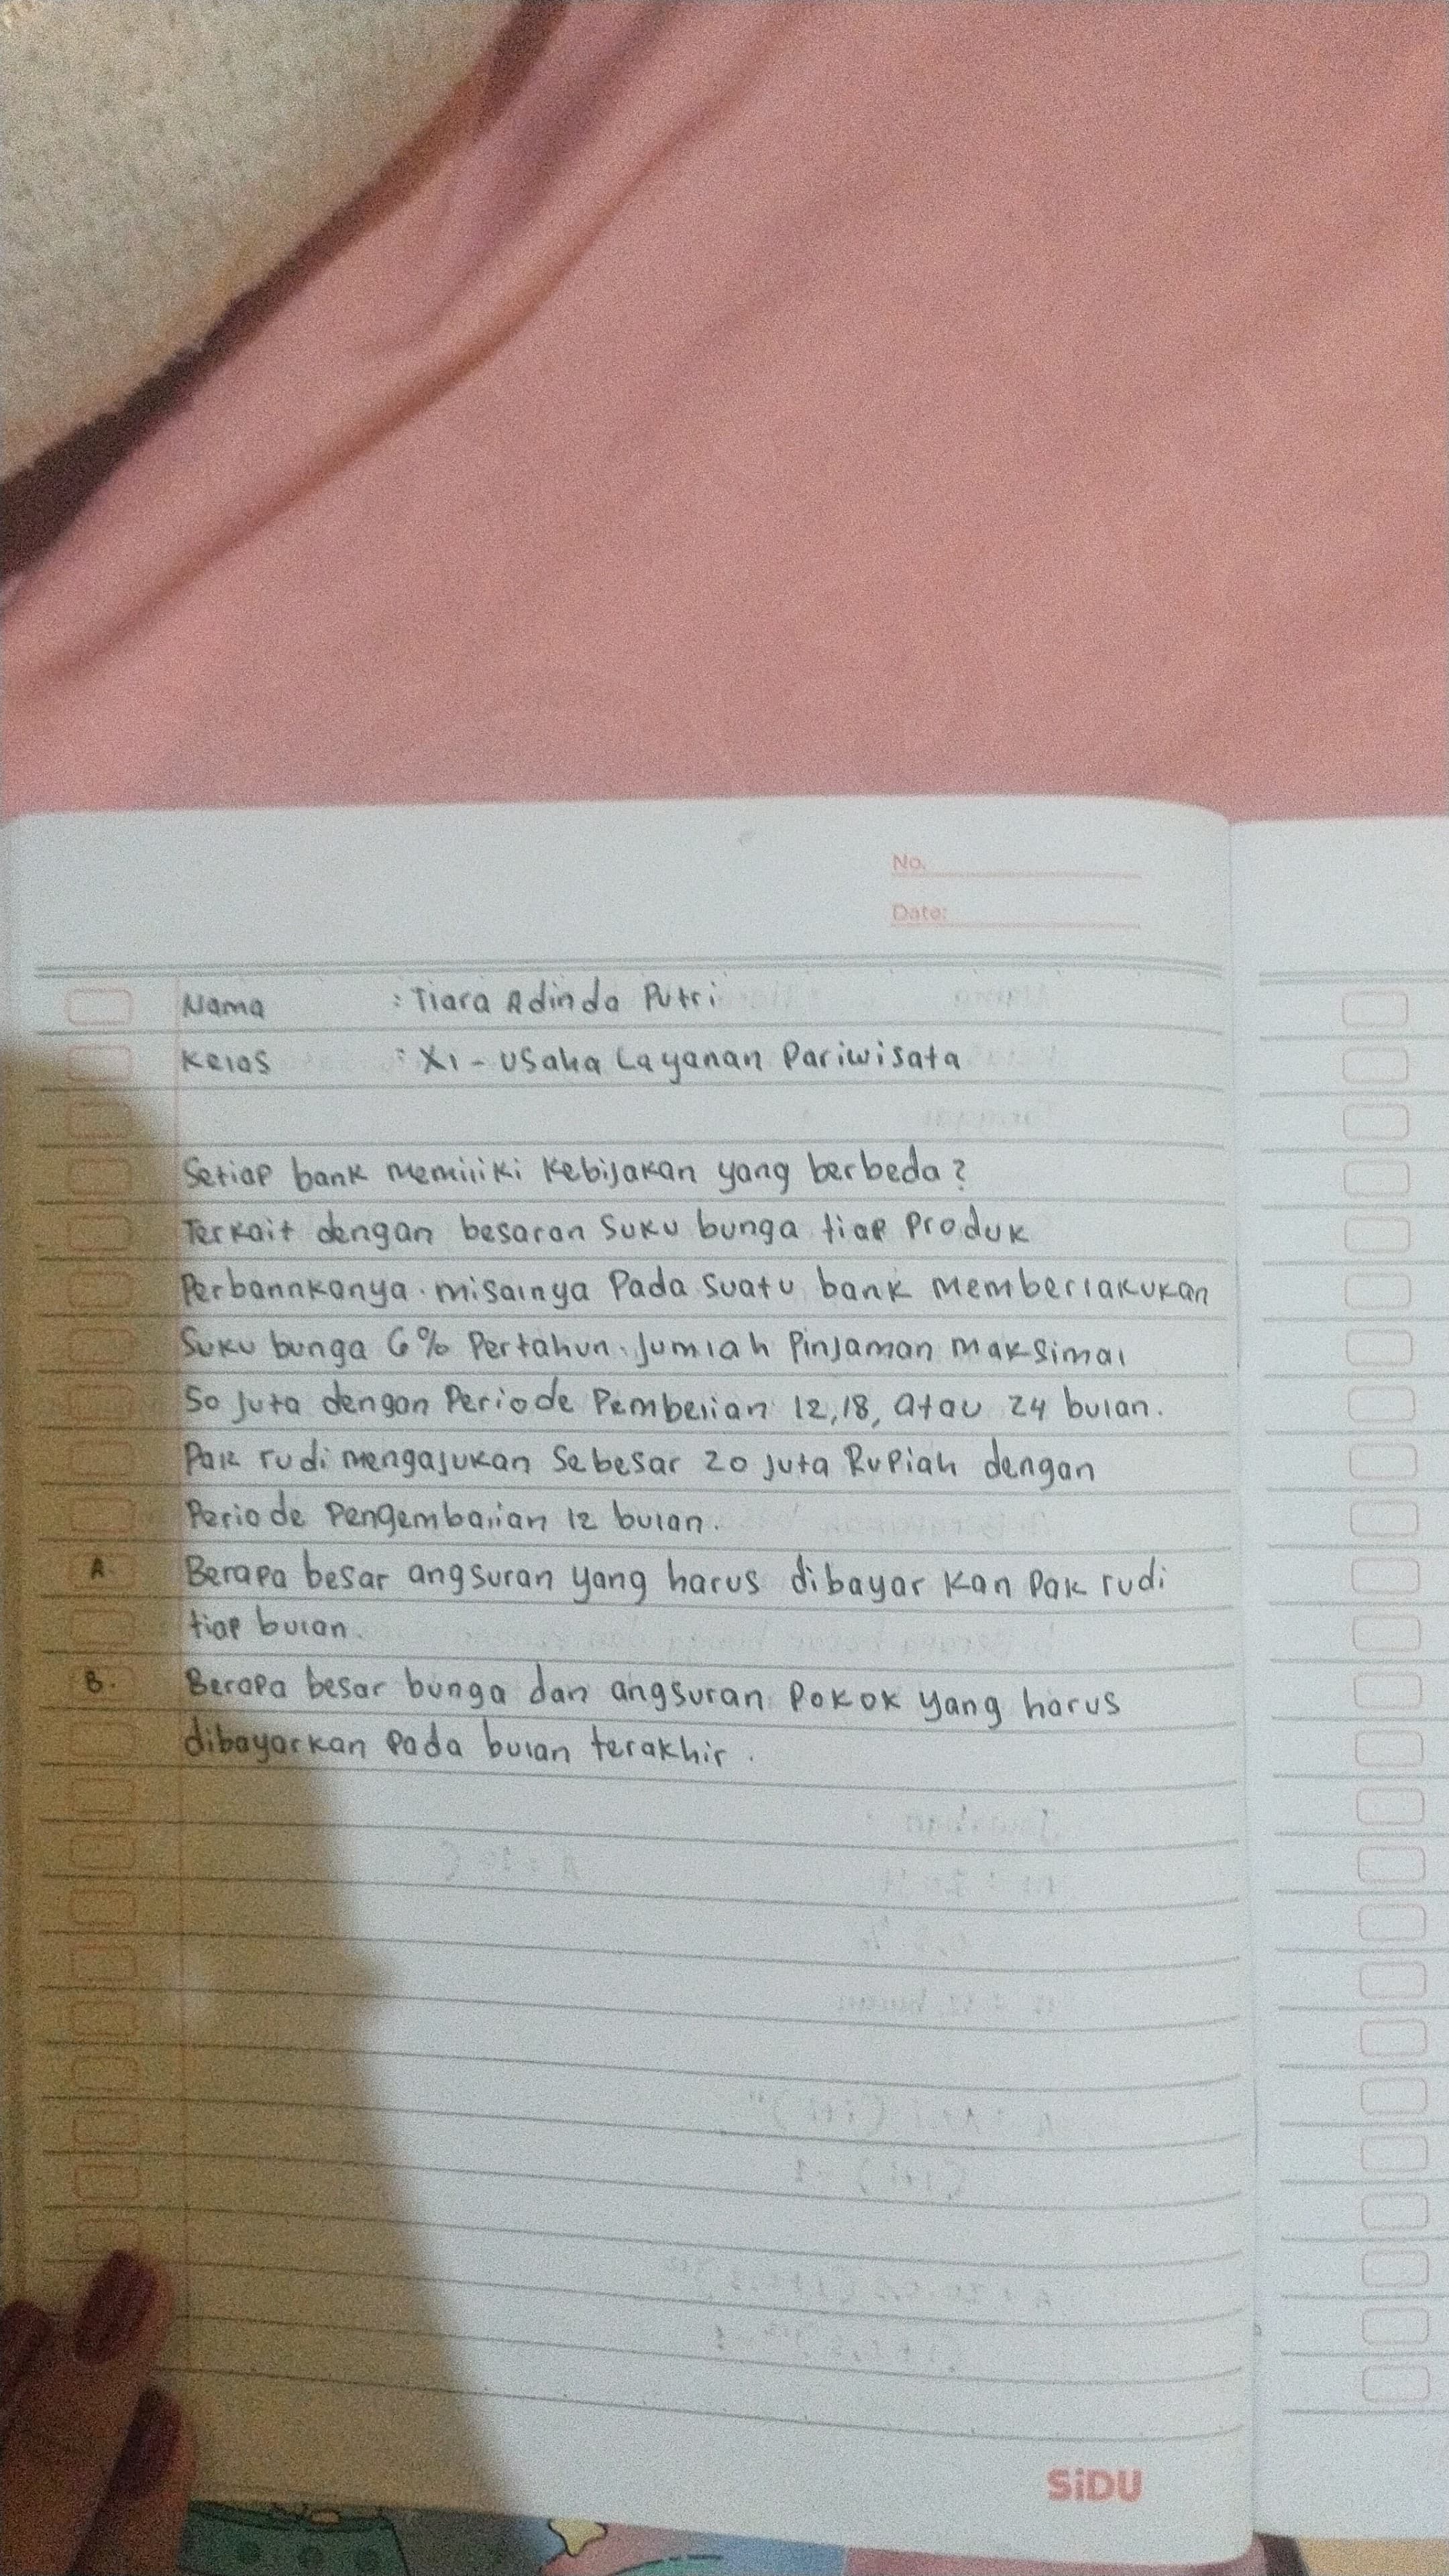 No.
Date:
Nama : Tiara Adinda Putri
Kelas : XI - Usaha Layanan Pariwisata
Setiap bank memiliki kebijakan yang berbeda?
Terkait dengan besaran suku bunga tiap produk
Perbannkanya. misalnya Pada suatu bank memberlakukan
Suku bunga 6% Pertahun. Jumlah Pinjaman maksimal
50 Juta dengan Periode Pembelian 12,18, atau 24 bulan.
Pak rudi mengajukan Sebesar 20 Juta Rupiah dengan
Periode Pengembalian 12 bulan.
A. Berapa besar angsuran yang harus dibayar kan Pak rudi
tiap bulan.
B. Berapa besar bunga dan angsuran Pokok yang harus
dibayarkan Pada bulan terakhir.
SiDU